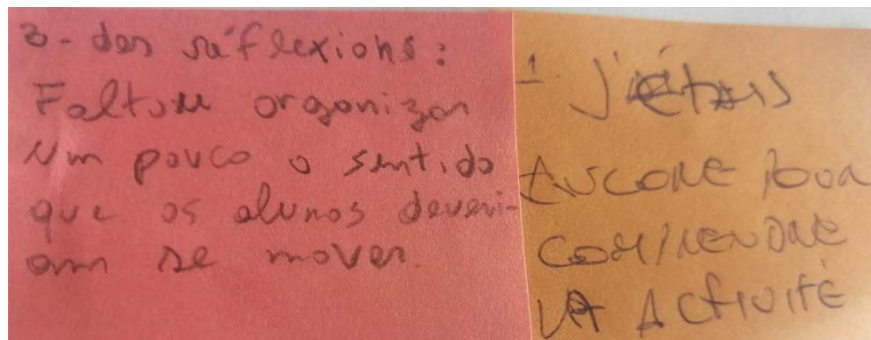 3 - des réflexions:
Faltou organizar
um pouco o sentido
que os alunos deveri-
am se mover.
1. J'étais
ENCORE POUR
COMPRENDRE
LA ACTIVITÉ